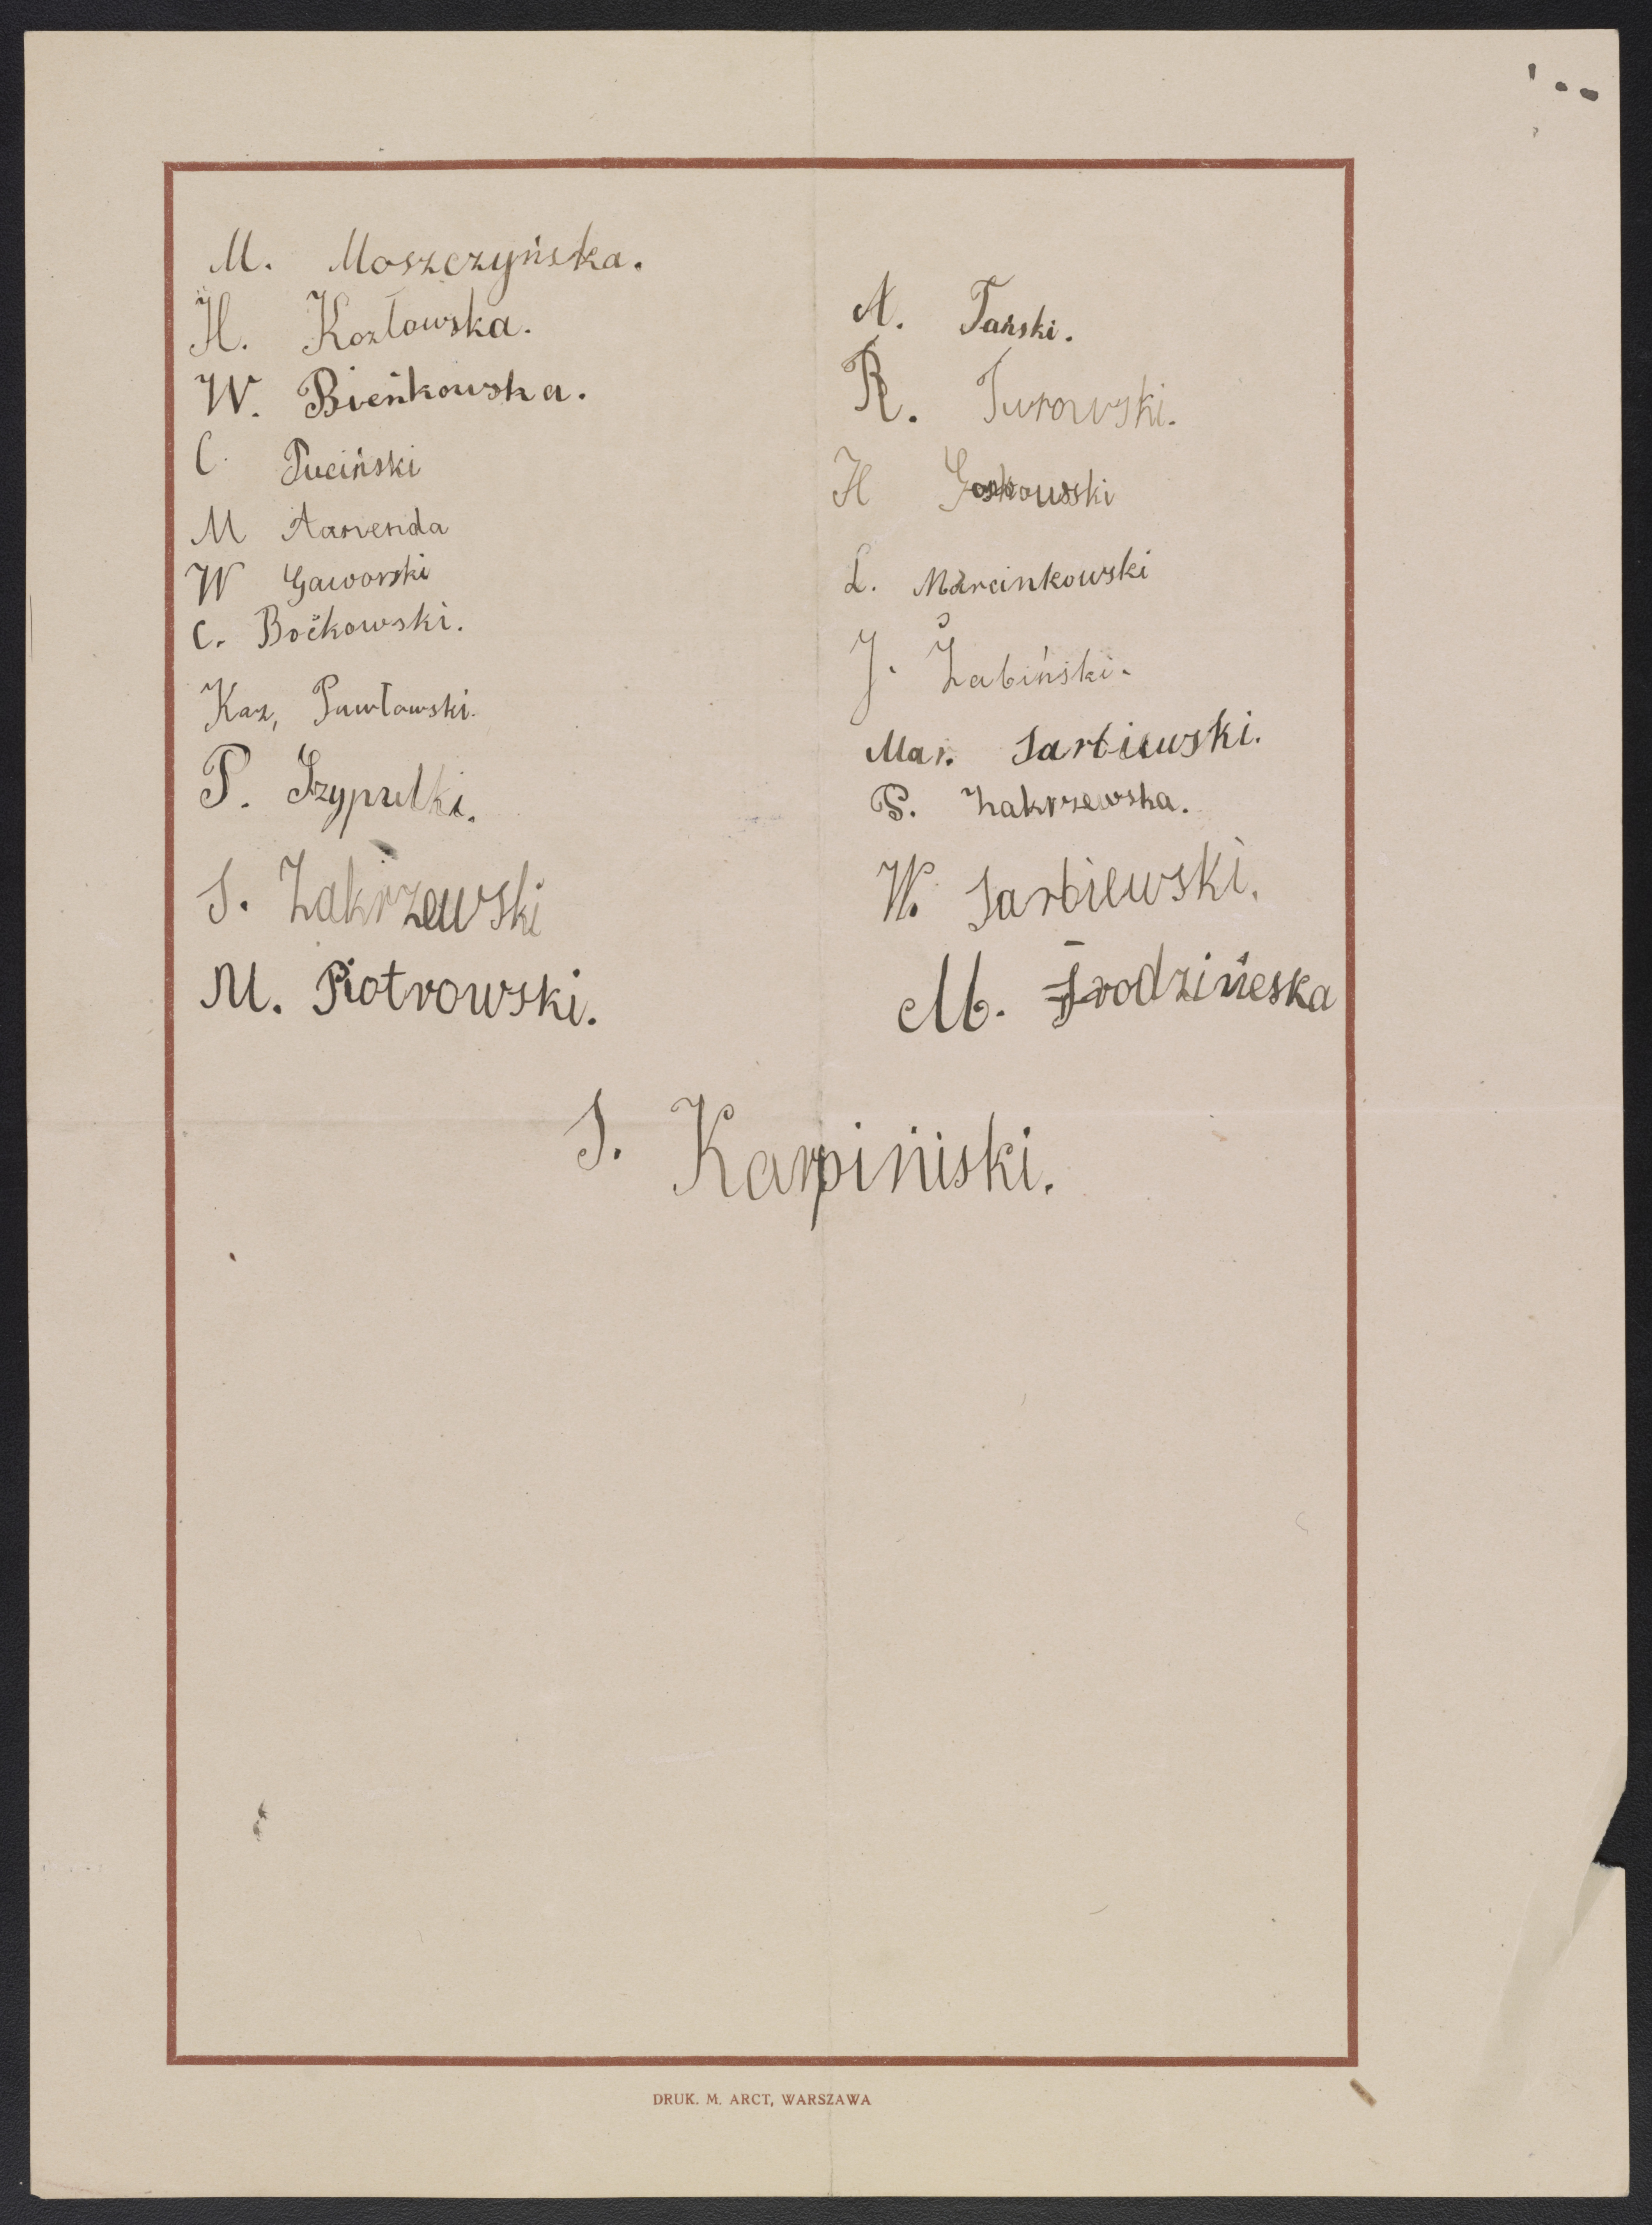 M. Moszczyńska.
H. Kozłowska.
W. Bieńkowska.
C. Puciński
M Aarenda
W Gaworski
C. Boćkowski.
Kaz, Pawłowski.
P. Szypulki.
S. Zakrzewski
M. Piotrowski.
A. Tański.
R. Turowski.
H
L. Marcinkowski
J. Żabiński.
Mar. Sarbiewski.
P. Zakrzewska.
W. Sarbiewski.
M. Środzińeska
S. Karpiński.
DRUK. M. ARCT, WARSZAWA